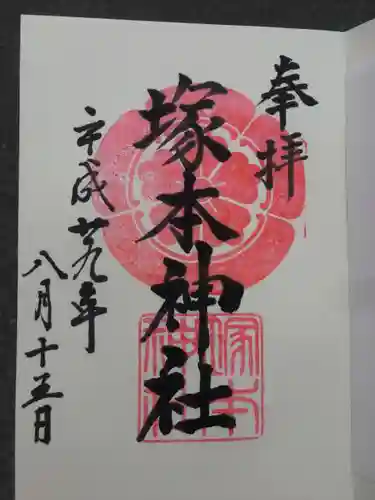 奉拝
塚本神社
平成廿九年
八月十五日
塚本
神社